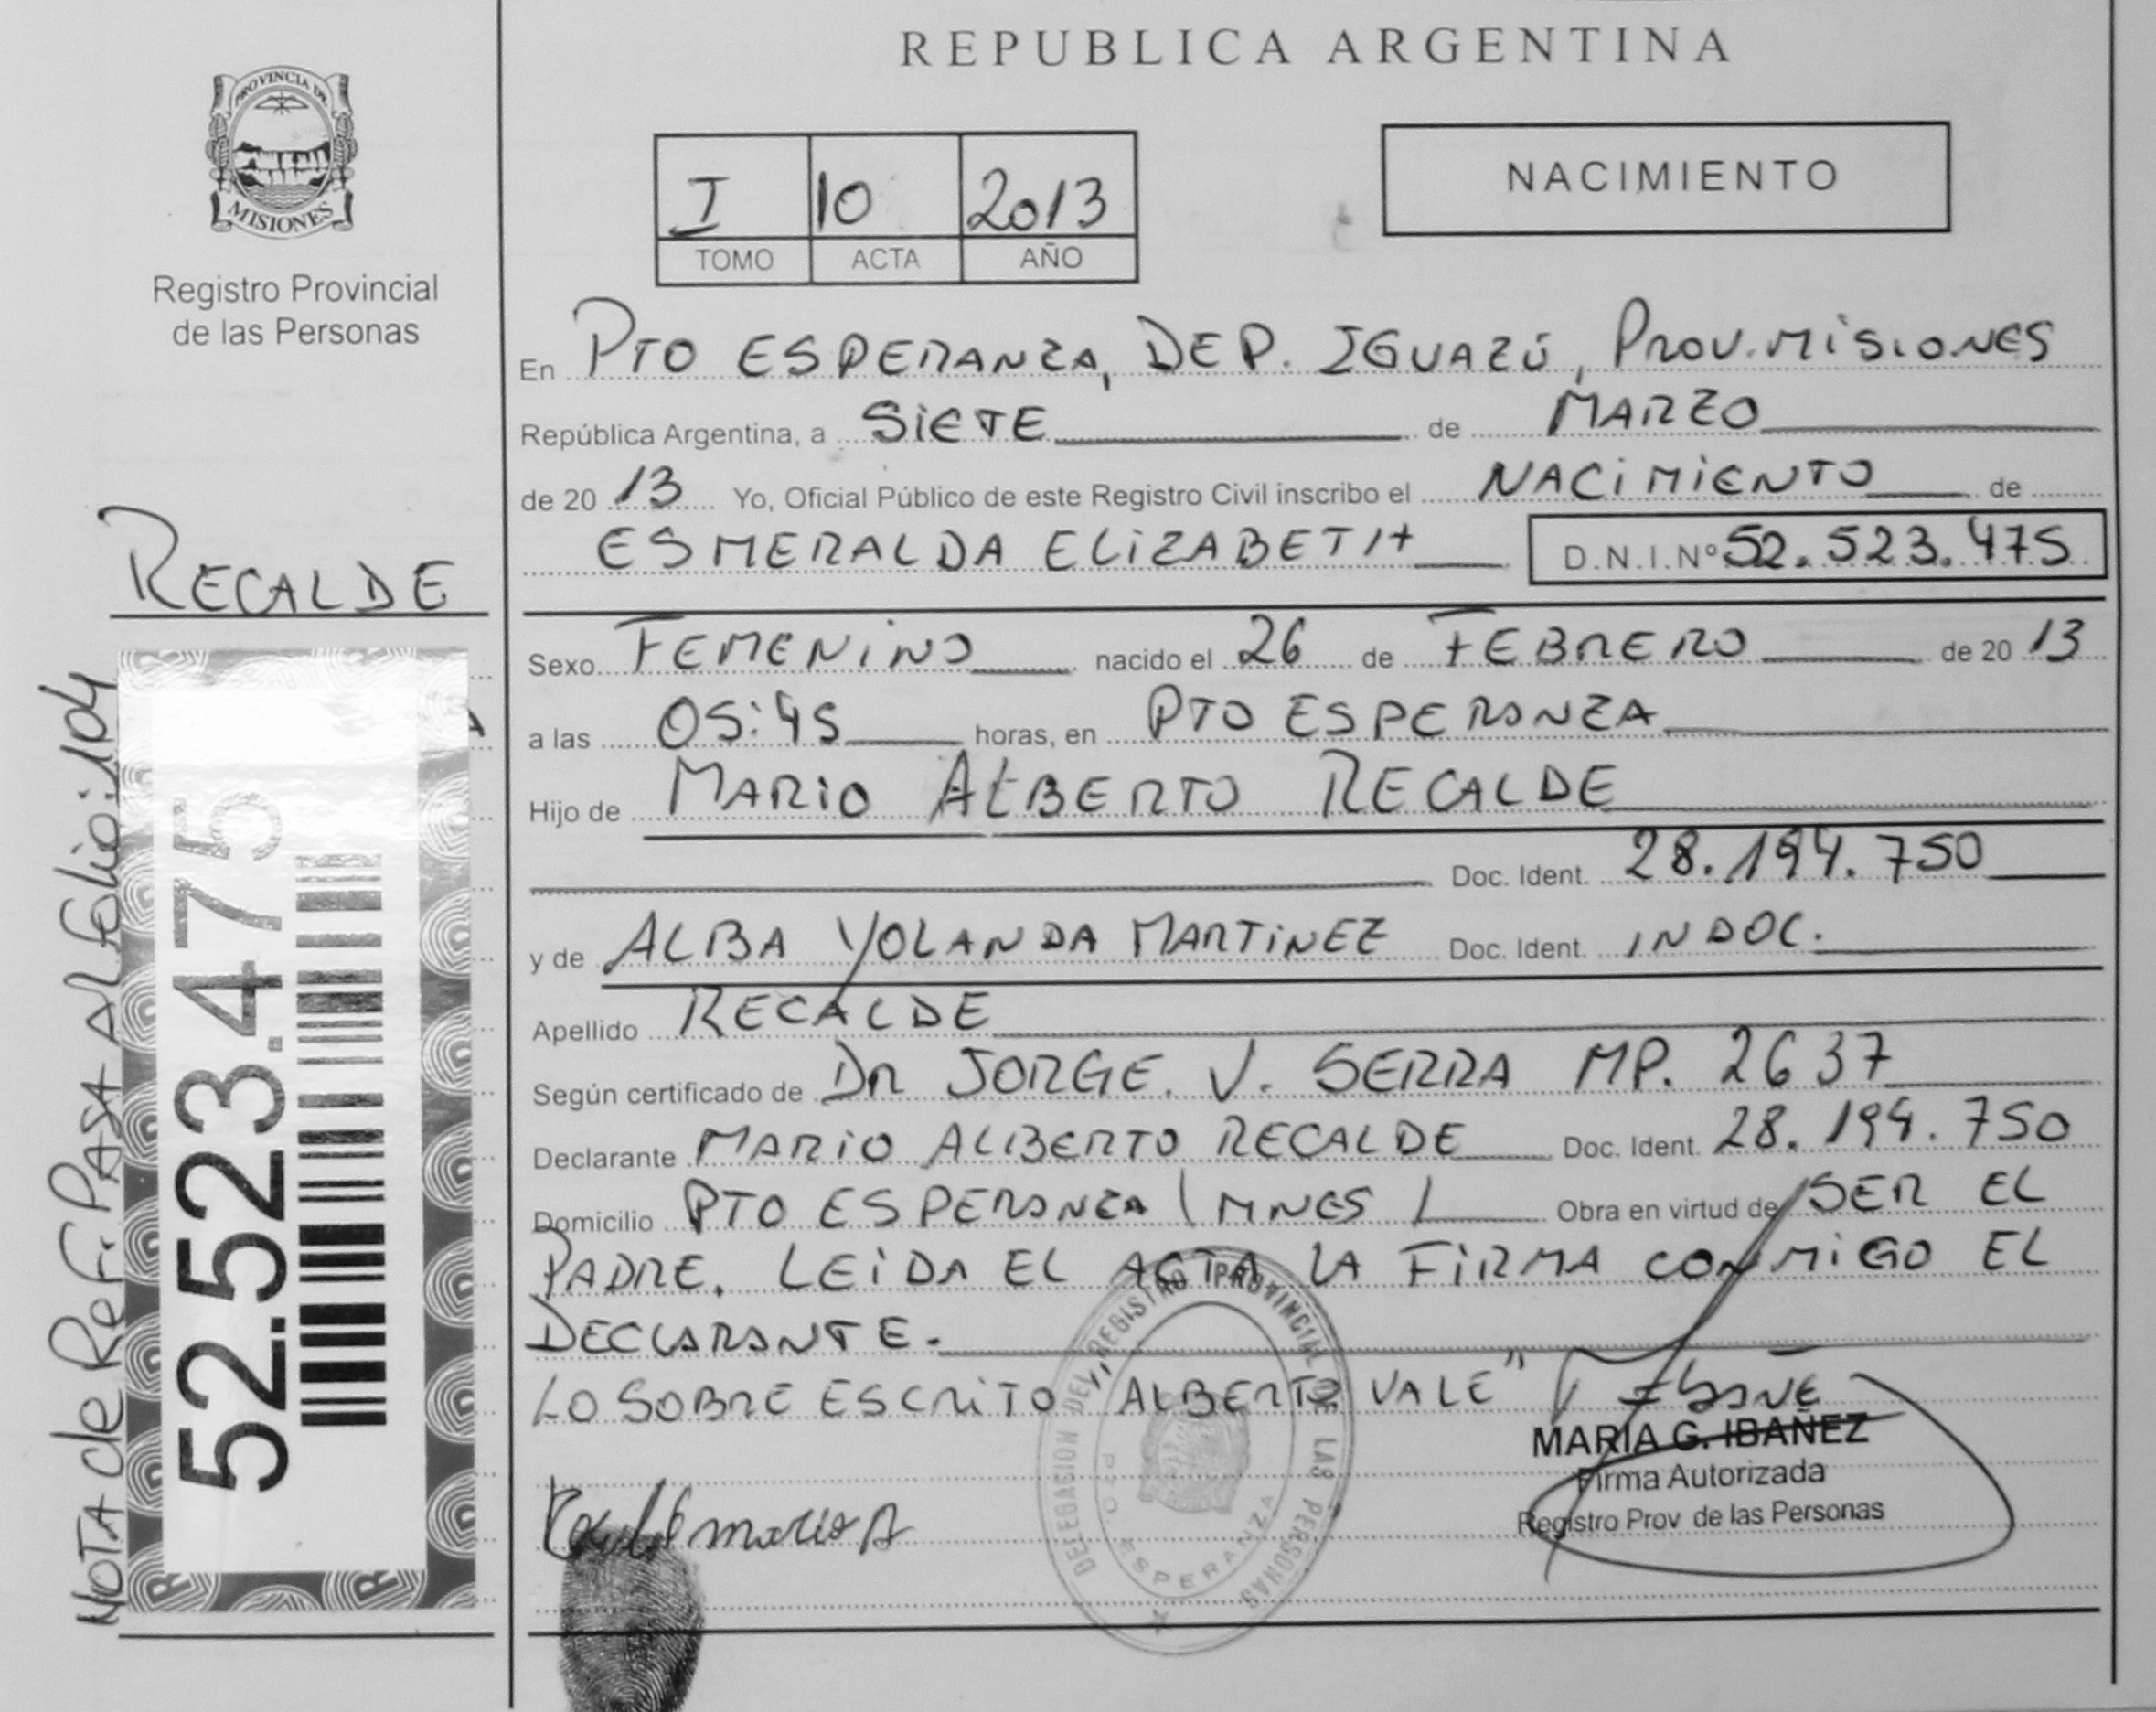 PROVINCIA DE
MISIONES
Registro Provincial
de las Personas
RECALDE
NOTA de Ref: PASA AL folio: 104
52.523.475
REPUBLICA ARGENTINA
I 10 2013
TOMO ACTA AÑO
NACIMIENTO
En PTO ESPERANZA, DEP. IGUAZÚ, PROV. MISIONES
República Argentina, a SIETE de MARZO
de 20 13 Yo, Oficial Público de este Registro Civil inscribo el NACIMIENTO de
ESMERALDA ELIZABETH D.N.I.Nº 52.523.475
Sexo FEMENINO nacido el 26 de FEBRERO de 20 13
a las 05:45 horas, en PTO ESPERANZA
Hijo de MARIO ALBERTO RECALDE
Doc. Ident. 28.194.750
y de ALBA YOLANDA MARTINEZ Doc. Ident. INDOC.
Apellido RECALDE
Según certificado de DR JORGE. V. SERRA MP. 2637
Declarante MARIO ALBERTO RECALDE Doc. Ident. 28.194.750
Domicilio PTO ESPERANZA (MNES) Obra en virtud de SER EL
PADRE. LEIDA EL ACTA LA FIRMA CONMIGO EL
DECLARANTE.
LO SOBRE ESCRITO "ALBERTO VALE"
MARIA G. IBAÑEZ
Firma Autorizada
Registro Prov de las Personas
DELEGASION DEL REGISTRO PROVINCIAL DE LAS PERSONAS
PTO ESPERANZA